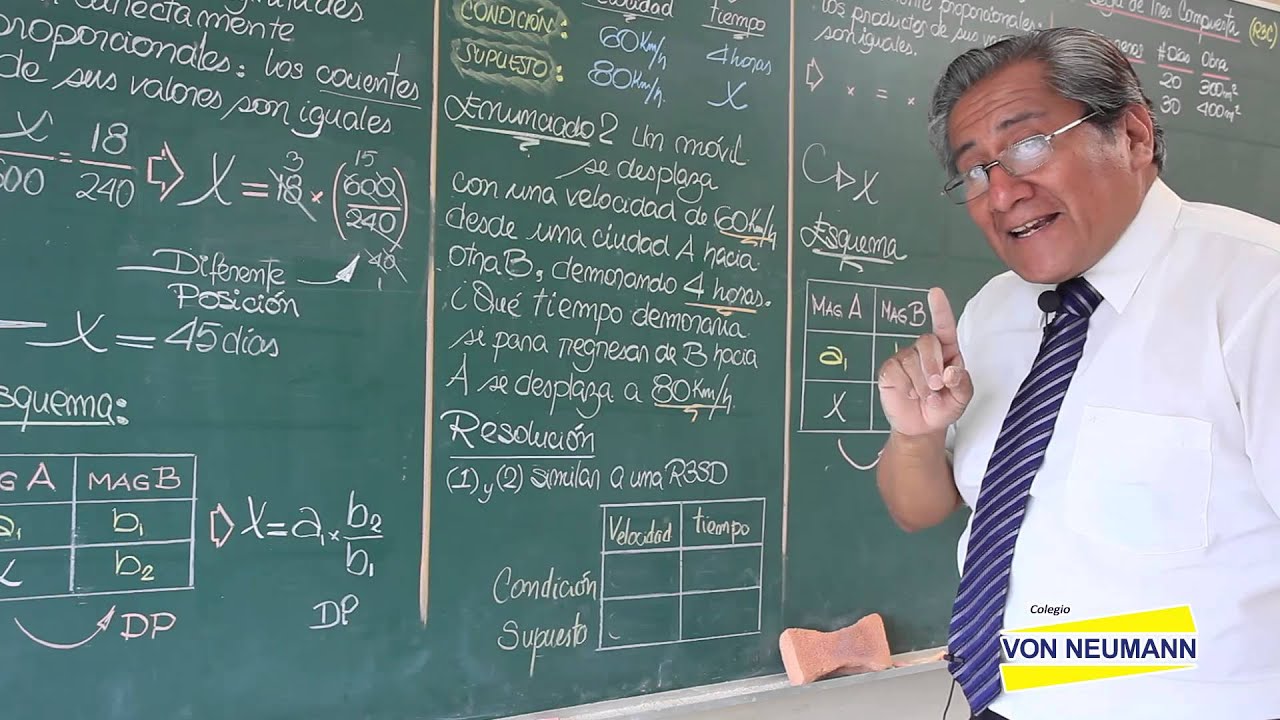 proporcionales: los cocientes
de sus valores son iguales
X/600 = 18/240 ⇨ X = 18 × (600/240)
3 15
40
1
Diferente
Posición
X = 45 días
squema:
MAG B
a₁ b₁
x b₂
DP
⇨ X = a₁ × b₂/b₁
DP
CONDICIÓN:
SUPUESTO:
tiempo
60Km/h 4 horas
80Km/h. X
Enunciado 2 Un móvil
se desplaza
con una velocidad de 60Km/h
desde una ciudad A hacia
otra B, demorando 4 horas.
¿Qué tiempo demoraría
si para regresar de B hacia
A se desplaza a 80Km/h
Resolución
(1) y (2) similar a una R3SD
Velocidad tiempo
Condición
Supuesto
proporcionales:
los productos de sus
son iguales.
⇨ × = ×
C ⇨ X
Esquema
MAG A MAG B
a₁
X
Regla de Tres Compuesta (R3C)
# Días Obra
20 300m²
30 400m²
Colegio
VON NEUMANN